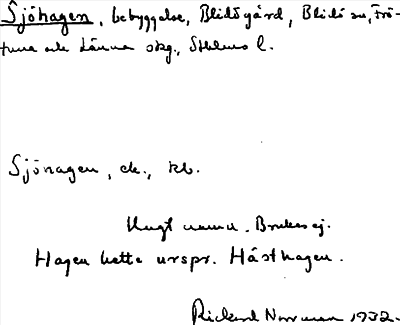 Sjöhagen, bebyggelse, Blidögård, Blidö sn, Frö-
tuna och Länna skg., Sthlms l.
Sjöhagen, ek., kb.
Ungt namn. Brukas ej.
Hagen hette urspr. Hästhagen.
Rickard Norrman 1932.